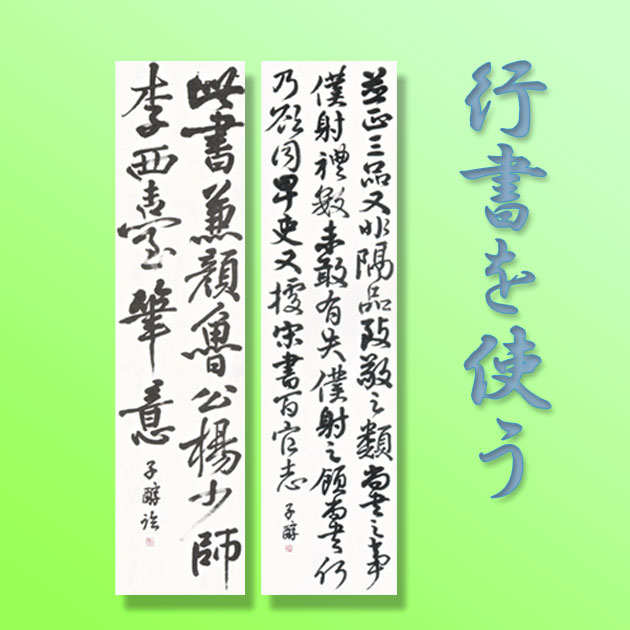 行書を使う
並正三品又非隔品致敬之類尚書之事
僕射禮數未敢有失僕射之領尚書何
乃欲同卑吏又據宋書百官志
子醇
此書兼顔魯公楊少師
李西臺筆意
子醇